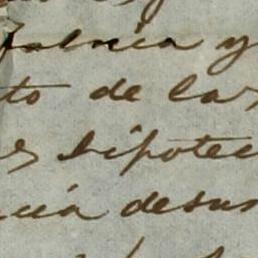 fabrica y
to de las
s hipotec
cia desus